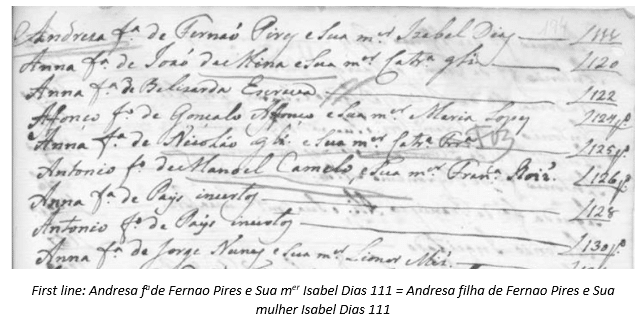 Andreza fª de Fernaõ Pirez e Sua mer Izabel Dias 111
Anna fª de Joaõ da Mina e Sua mer Catrª glz 120
Anna fª de Belizarda Escrava 122
Afonso fº de Gonçalo Affonço e sua mer Maria Lopez 124
Anna fª de Nicolâo glz e sua mer Catrª 125
Antonio fº de Manoel Camelo, e Sua mer Franª Roiz. 126
Anna fª de Pays incertos 128
Antonio fº de Pays incertos 130
Anna fª de Jorge Nunez e sua mer Lianor
First line: Andresa fª de Fernao Pires e Sua mer Isabel Dias 111 = Andresa filha de Fernao Pires e Sua
mulher Isabel Dias 111